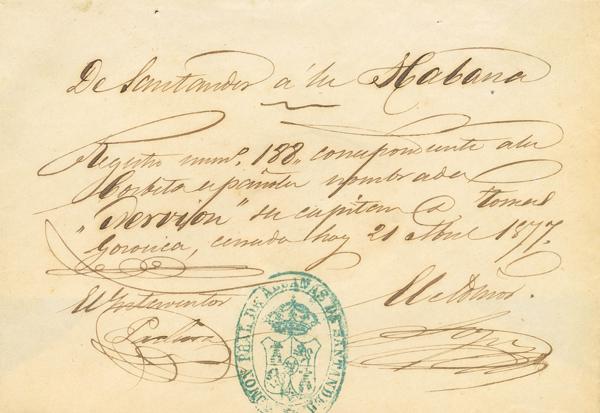 De Santander á la Habana
Registro núm. 188, correspondente a la
Corbeta española nombrada
"Nervion" su capitan D. Tomas
Goronica, cerrada hoy 21 Abril 1877.
El Interventor El Admor.
ON PRAL DE ADUANAS DE SANTANDER